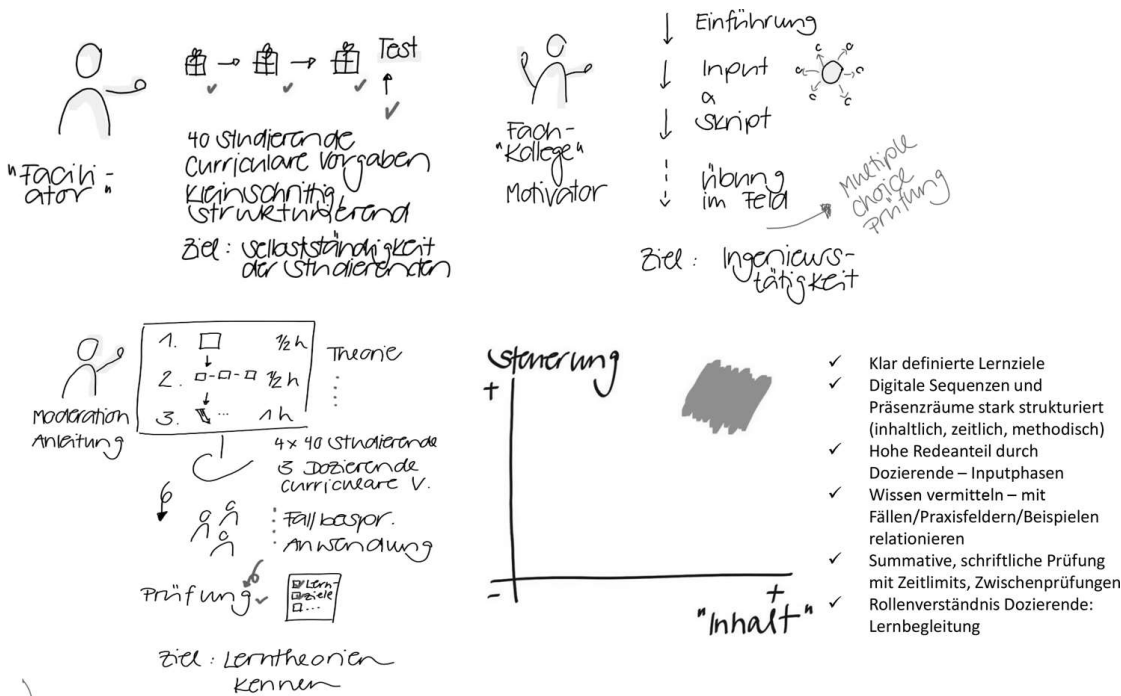 Test
40 Studierende
Curriculare Vorgaben
Kleinschrittig
strukturierend
Ziel: Selbstständigkeit
der Studierenden
"Facilit-
ator"
Einführung
Input
Skript
Übung
im Feld
Multiple
choice
Prüfung
Fach-
"Kollege"
Motivator
Ziel: Ingenieurs-
tätigkeit
1. 1/2 h
2. 1/2 h
3. ... 1 h
Theorie
Moderation
Anleitung
4 x 40 Studierende
3 Dozierende
curriculare V.
Fallbespr.
Anwendung
Prüfung
Lern-
ziele
...
Ziel: Lerntheorien
kennen
Steuerung
+
-
+
"Inhalt"
✓ Klar definierte Lernziele
✓ Digitale Sequenzen und
Präsenzräume stark strukturiert
(inhaltlich, zeitlich, methodisch)
✓ Hohe Redeanteil durch
Dozierende – Inputphasen
✓ Wissen vermitteln – mit
Fällen/Praxisfeldern/Beispielen
relationieren
✓ Summative, schriftliche Prüfung
mit Zeitlimits, Zwischenprüfungen
✓ Rollenverständnis Dozierende:
Lernbegleitung